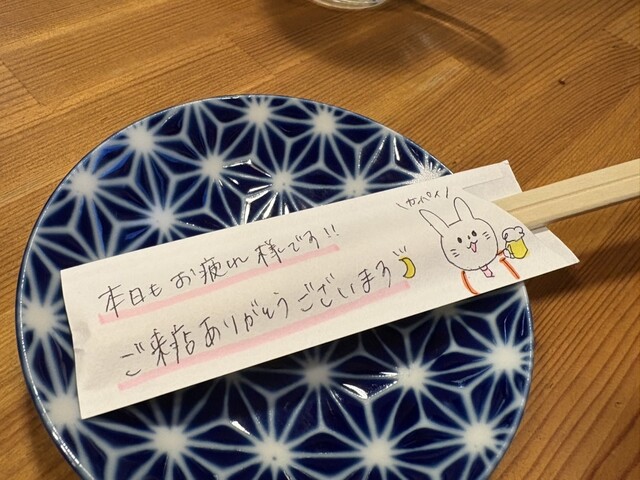 \カンパイ/
本日もお疲れ様です!!
ご来店ありがとうございまする